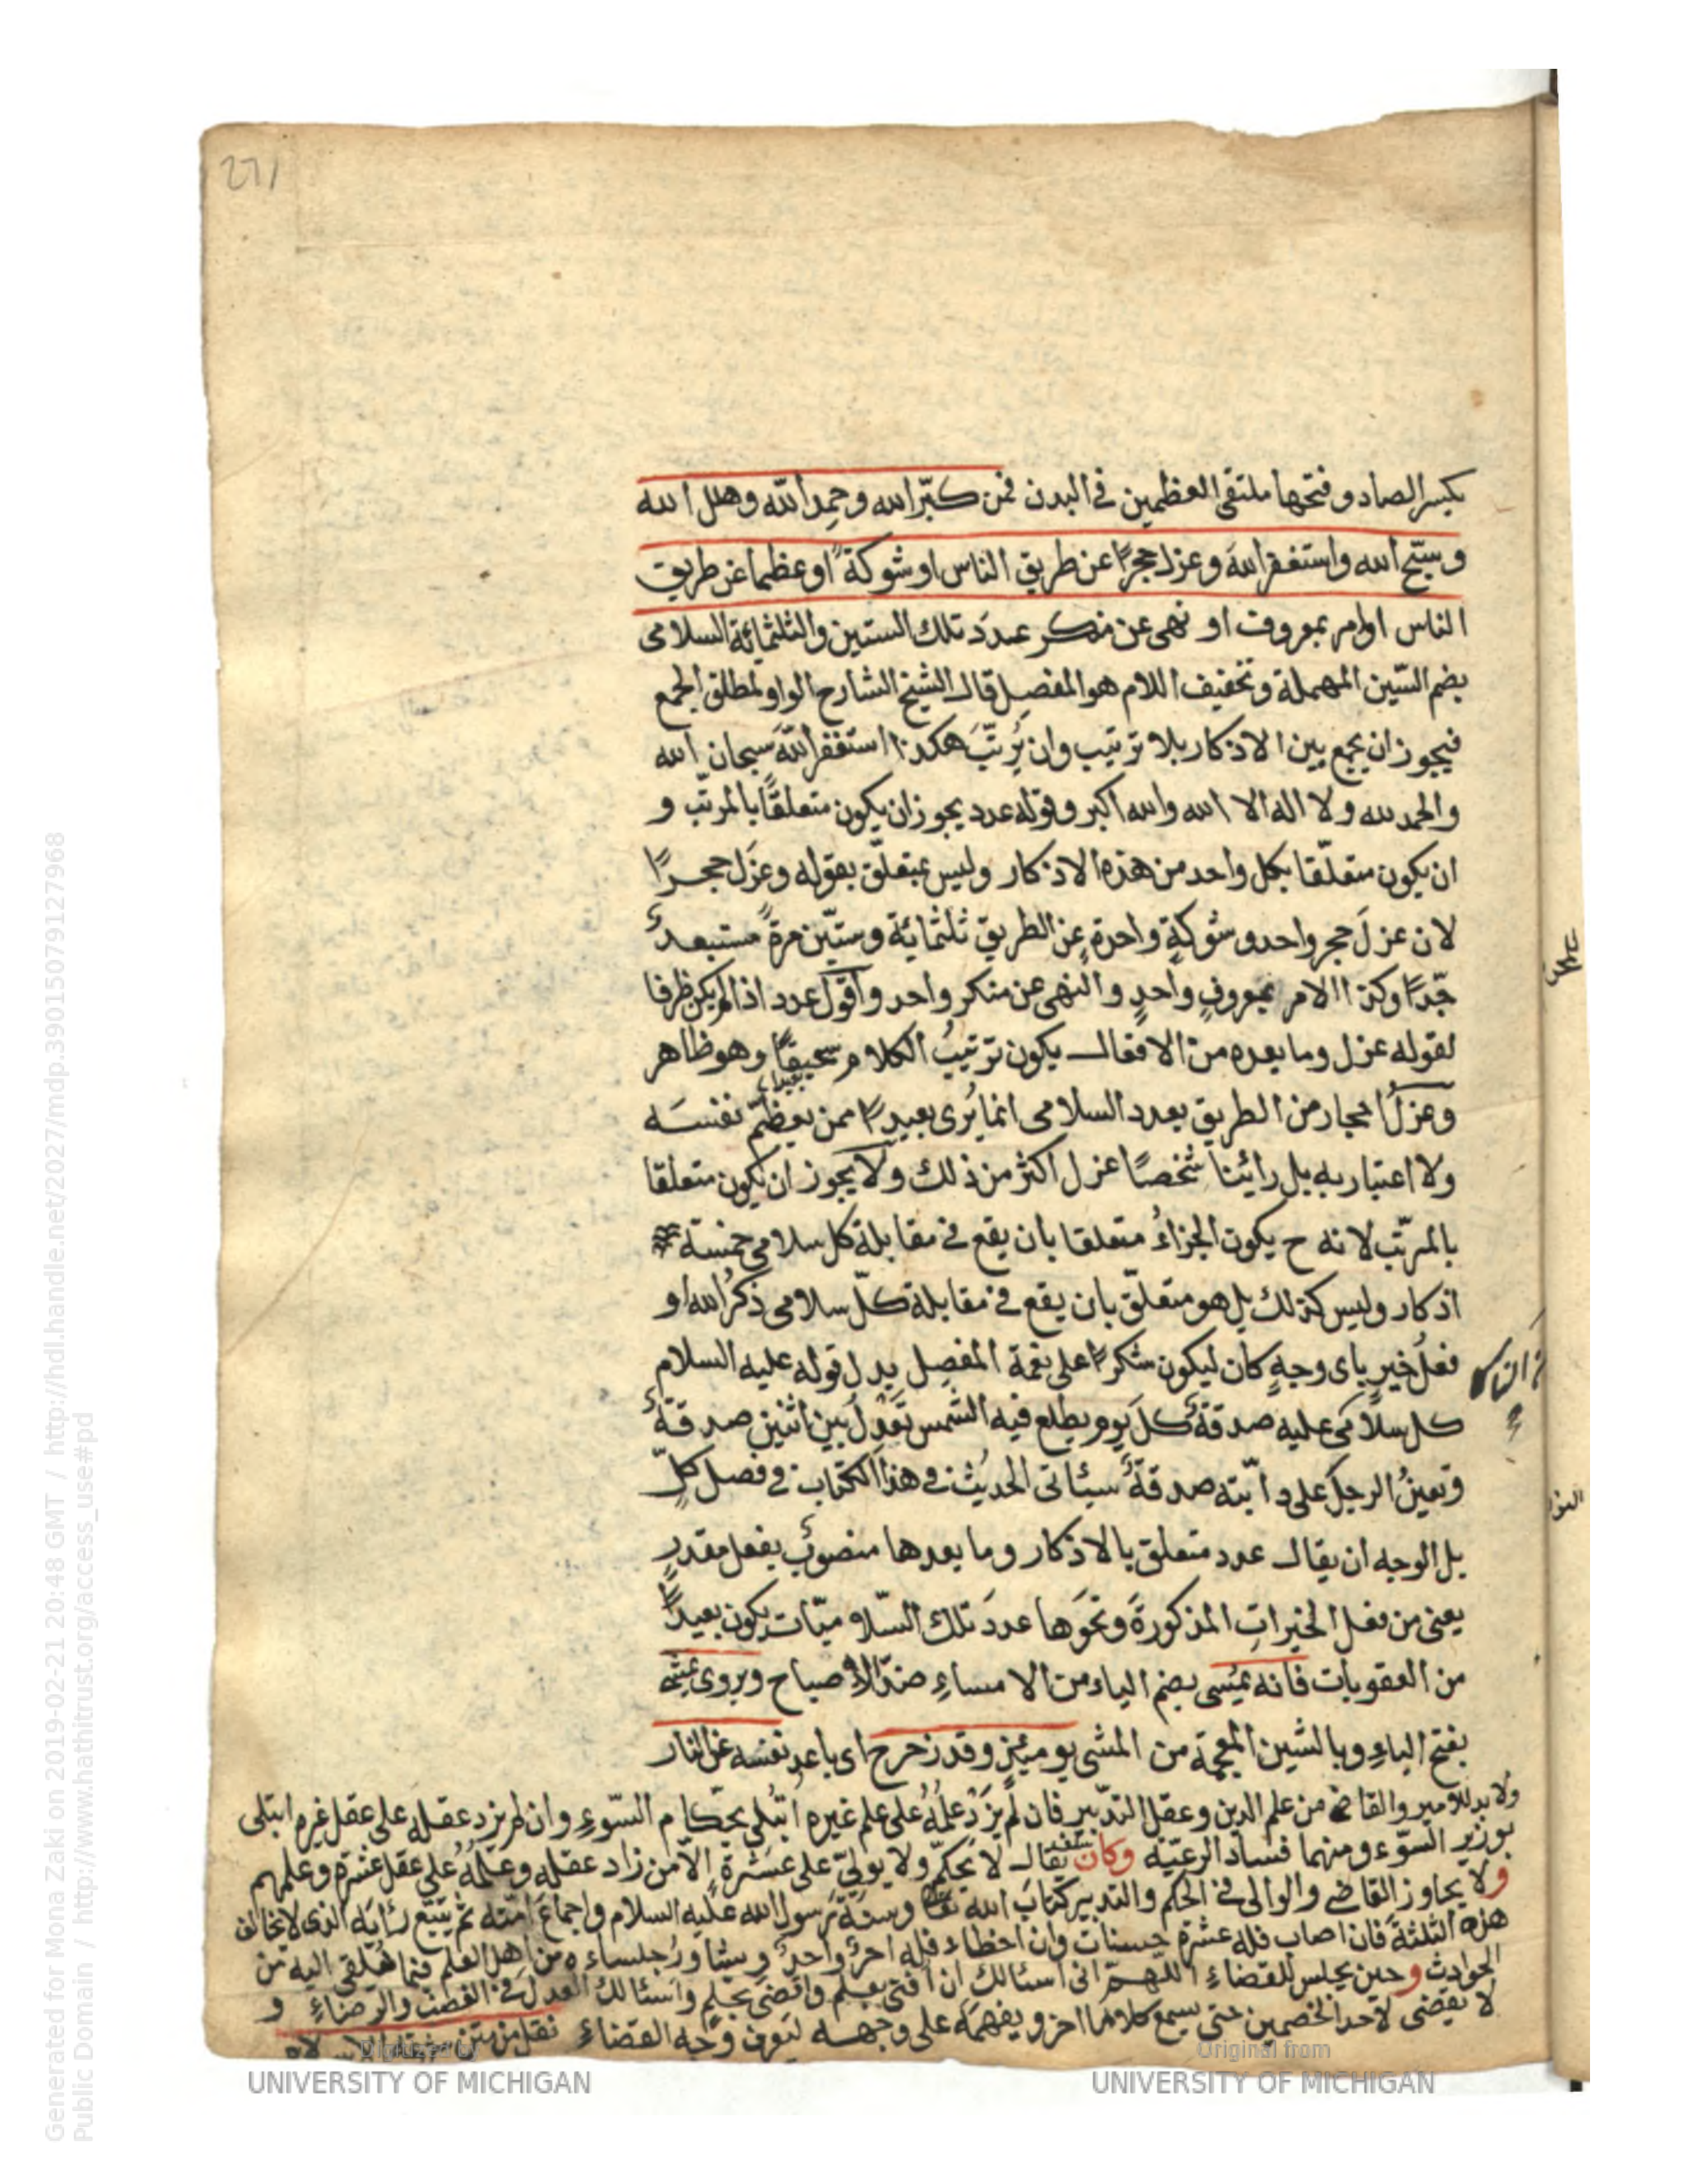 271
بكسر الصاد وفتحها ملتقى العظمين في البدن فمن كبّر الله وحمد الله وهلل الله
وسبّح الله واستغفر الله وعزل حجرًا عن طريق الناس او شوكةً او عظما عن طريق
الناس او امر بمعروف او نهى عن منكر عددَ تلك الستين والثلثمائة السلامى
بضم السّين المهملة وتخفيف اللام هو المفصل قال الشيخ الشارح الواو لمطلق الجمع
فيجوز ان يجمع بين الاذكار بلا ترتيب وان يُرتّبَ هكذا استغفر اللهَ سبحان الله
والحمد لله ولا اله الا الله والله اكبر وقوله عدد يجوز ان يكون متعلقًا بالمرتّب و
ان يكون متعلّقا بكل واحد من هذه الاذكار وليس بمتعلّق بقوله وعزَل حجرًا
لان عزلَ حجر واحد وشوكةٍ واحدةٍ عن الطريق ثلثمائة وستّين مرةً مستبعدٌ
جّدًا وكذا الامر بمعروفٍ واحدٍ والنهى عن منكر واحد واقول عدد اذا لم يكن ظرفا
لقوله عزل وما بعده من الافعال يكون ترتيبُ الكلام سخيفًا وهو ظاهر
وعزلُ احجار من الطريق بعدد السلامى انما يُرى بعيدًا ممن يعظّم نفسَه
ولا اعتبار به بل رائينا شخصًا عزل اكثر من ذلك ولا يجوز ان يكون متعلقا
بالمرتّب لانه ح يكون الجزاءُ متعلقا بان يقع في مقابلة كل سلامى خمسة
اذكار وليس كذلك بل هو متعلّق بان يقع في مقابلة كلّ سلامى ذكرُ الله او
فعلُ خيرٍ باى وجهٍ كان ليكون شكرًا على نعمة المفصل يدل قوله عليه السلام
كل سلامى عليه صدقةٌ كلَ يوم يطلع فيه الشمس تَعْدِلُ بين اثنين صدقةٌ
وتعينُ الرجلَ على دابّته صدقةٌ سيئاتى الحديث في هذا الكتاب في فصل كلّ
بل الوجه ان يقال عدد متعلق بالاذكار وما بعدها منصوبٌ بفعل مقدرٍ
يعنى من فعل الخيراتِ المذكورةَ ونحوَها عددَ تلك السّلاميّات يكون بعيدًا
من العقوبات فانه يمُسى بضم الياء من الامساءِ ضدّ الاصباح ويروى يمشى
بفتح الياءِ وبالشين المعجمة من المشى يومئذٍ وقد زحزح اى باعد نفسَه عن النار
ولا بد للامير والقاضى من علم الدين وعقل التدبير فان لم يزدْ علمُهُ على علم غيره ابتُلى بحكام السّوءِ وان لم يزد عقله على عقل غيره ابتلى
بوزير السّوء ومنهما فساد الرعيّة وكان يقال لا يحكّم ولا يولىّ على عشرة الاّ من زاد عقله وعلمُهُ على عقل عشرة وعلمهم
ولا يجاوز القاضى والوالى في الحكم والتدبير كتابَ الله تعا وسنّةَ رسول الله عليه السلام واجماعَ امّته ثم يتبع رأيَه الذى لا يخالف
هذه الثلثةَ فان اصاب فله عشرة حسنات وان اخطاء فله اجرٌ واحدٌ ويشاورُ جلساءه من اهل العلم فيما يُلقى اليه من
الحوادث وحين يجلس للقضاءِ اللهمّ انى اسئالك ان افتى بعلم واقضىَ بحلم واسئالكَ العدلَ في الغضب والرضاءِ و
لا يقضى لاحد الخصمين حتى يسمع كلام الآخر ويفهمَه على وجهه ليعرف وجه القضاء نقل من متن
Digitized by
UNIVERSITY OF MICHIGAN
Original from
UNIVERSITY OF MICHIGAN
Generated for Mona Zaki on 2019-02-21 20:48 GMT / http://hdl.handle.net/2027/mdp.39015079127968
Public Domain / http://www.hathitrust.org/access_use#pd